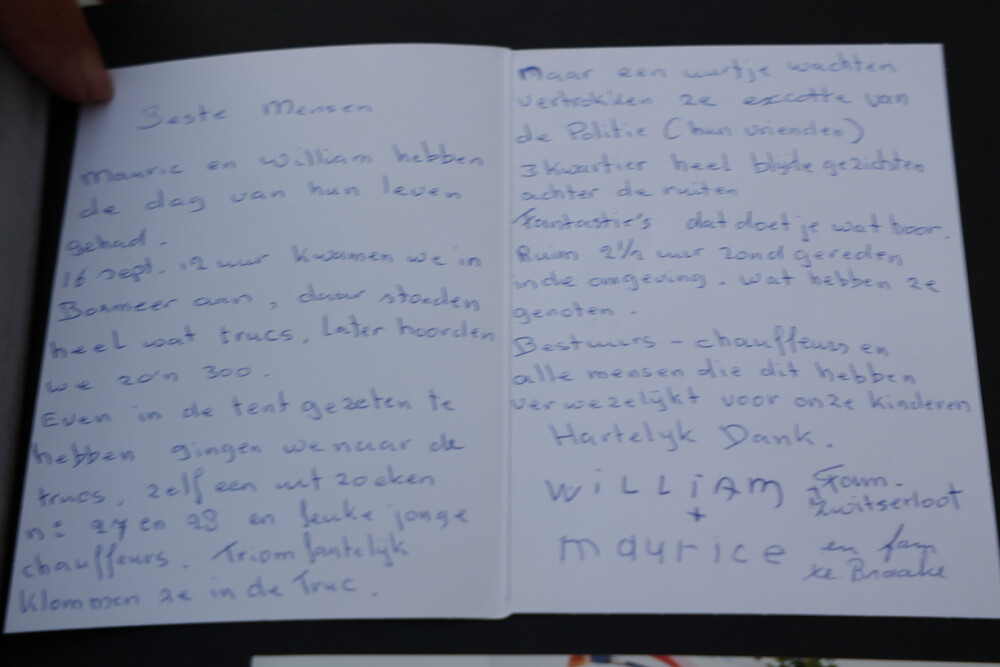 Beste Mensen
Mauric en William hebben
de dag van hun leven
gehad.
16 sept. 12 uur kwamen we in
Boxmeer aan, daar stonden
heel wat trucs. Later hoorden
we zo'n 300.
Even in de tent gezeten te
hebben gingen we naar de
trucs, zelf een uit zoeken
n: 27 en 28 en leuke jonge
chauffeurs. Triomfantelijk
Klommen ze in de Truc.
Maar een uurtje wachten
vertrokken ze excotte van
de Politie (hun vrienden)
3 Kwartier heel blijde gezichten
achter de ruiten
Fantastie's dat doet je wat hoor.
Ruim 2½ uur rond gereden
in de omgeving. wat hebben ze
genoten.
Bestuurs - chauffeurs en
alle mensen die dit hebben
verwezelijkt voor onze kinderen
Hartelyk Dank.
WiLLiAM Fam.
Zwitserloot
+
maurice en fam
te Braake